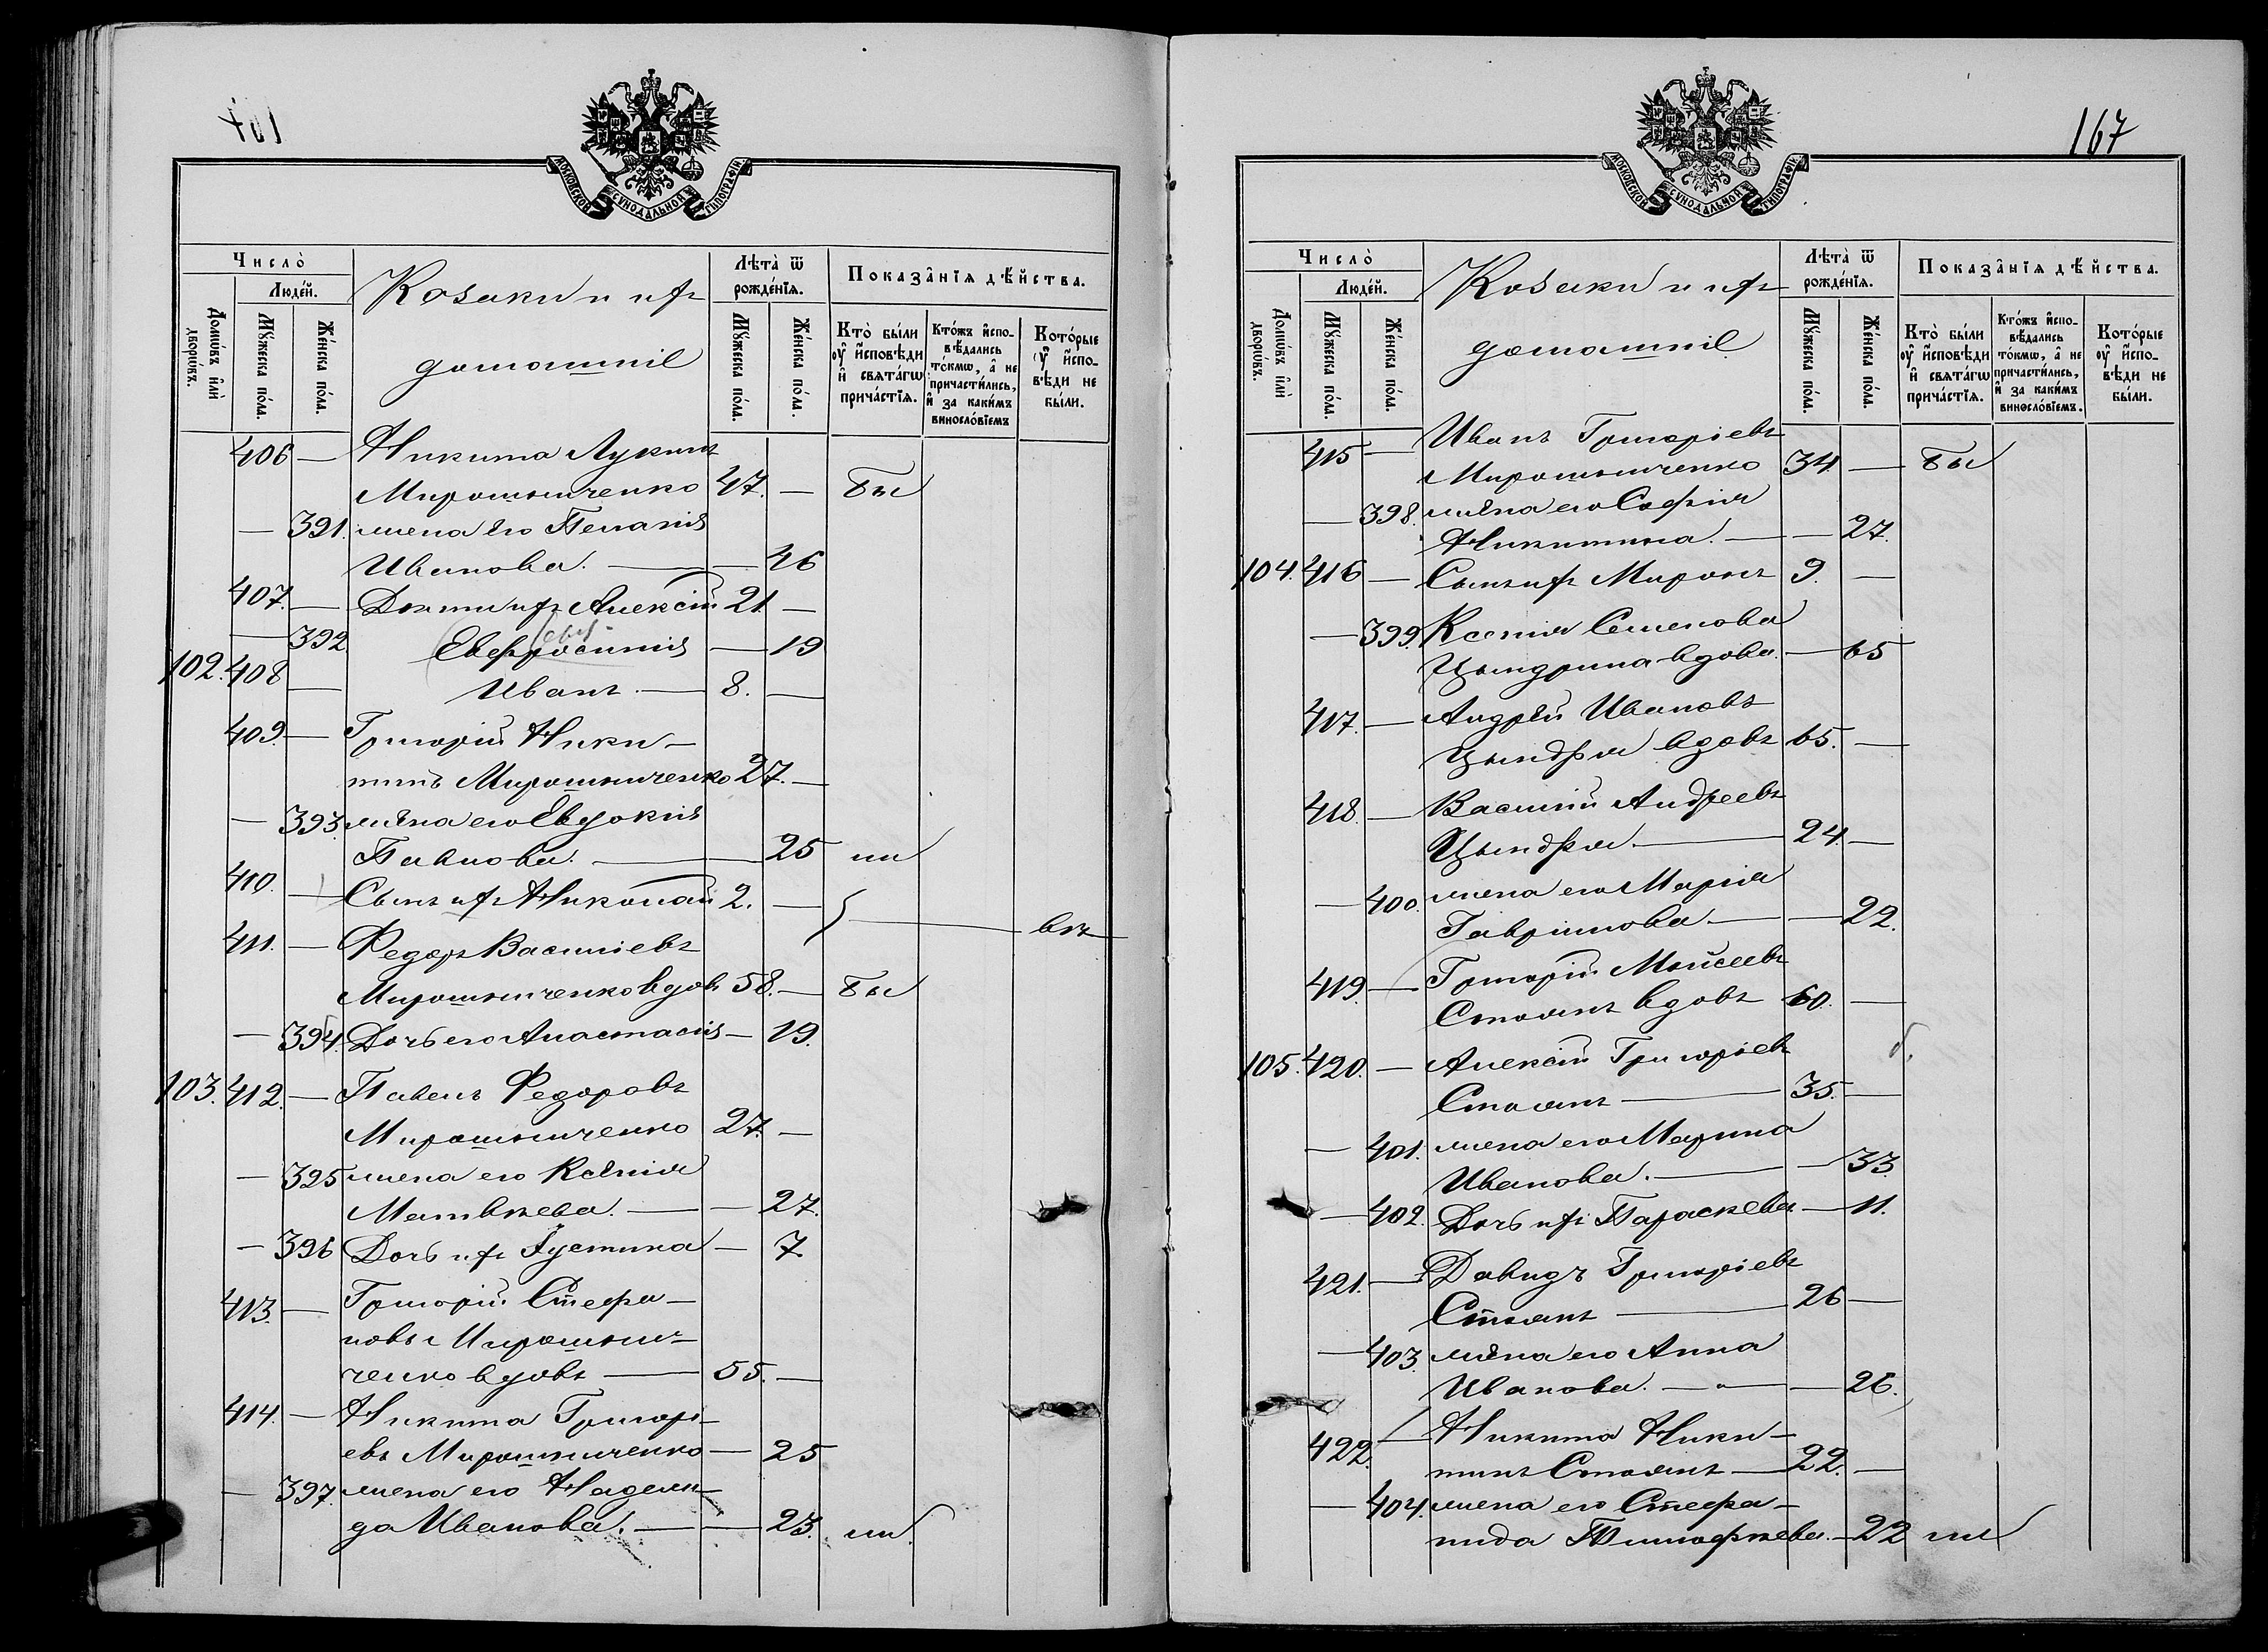 МОСКОВСКОЙ СѴНОДАЛЬНОЙ ТИПОГРАФІИ.
Число̀
Люде́й.
Домѡ́въ и҆лѝ дворѡ́въ.
Мꙋ́жеска по́ла.
Же́нска по́ла.
Козаки и ихъ
домашніе
Лѣта̀ ѿ рожде́нїѧ.
Мꙋ́жеска по́ла.
Же́нска по́ла.
Показа̑нїѧ дѣ́йства.
Кто̀ бы́ли оу҆ и҆сповѣ́ди и҆ свѧта́гѡ прича́стїѧ.
Кто́жъ и҆спо-вѣ́дались то́кмѡ, а҆ не причасти́лись, и҆ за каки́мъ виносло́вїемъ
Кото́рые оу҆ и҆спо-вѣ́ди не бы́ли.
406 — Никита Лукинъ
Мирошниченко 47. — Бы
— 391. жена его Пелагія
Иванова. — 46
407. — Дѣти ихъ Алексѣй 21 —
— 392 Евфросинія — 19
102. 408 — Иванъ. — 8. —
409. — Григорій Ники-
тинъ Мирошниченко 27. —
— 393. жена его Евдокія
Павлова. — 25 ли
410. — Сынъ ихъ Николай 2. —
411. — Федоръ Василіевъ
Мирошниченко вдов 58. — Бы
— 394. Дочь его Анастасія — 19.
103. 412. — Павелъ Федоровъ
Мирошниченко 27. —
— 395 жена его Ксенія
Матвѣева. — 27.
— 396 Дочь ихъ Іустина — 7
413. — Григорій Стефа-
новъ Мирошни-
ченко вдовъ — 55. —
414. — Никита Григорі-
евъ Мирошниченко — 25
— 397. жена его Надеж-
да Иванова. — 23. ли.
167
МОСКОВСКОЙ СѴНОДАЛЬНОЙ ТИПОГРАФІИ.
Число̀
Люде́й.
Домѡ́въ и҆лѝ дворѡ́въ.
Мꙋ́жеска по́ла.
Же́нска по́ла.
Козаки и ихъ
домашніе
Лѣта̀ ѿ рожде́нїѧ.
Мꙋ́жеска по́ла.
Же́нска по́ла.
Показа̑нїѧ дѣ́йства.
Кто̀ бы́ли оу҆ и҆сповѣ́ди и҆ свѧта́гѡ прича́стїѧ.
Кто́жъ и҆спо-вѣ́дались то́кмѡ, а҆ не причасти́лись, и҆ за каки́мъ виносло́вїемъ.
Кото́рые оу҆ и҆спо-вѣ́ди не бы́ли.
415 — Иванъ Григоріевъ
Мирошниченко 34. — Бы
— 398. жена его Софія
Никитина. — 27.
104. 416 — Сынъ ихъ Миронъ 9. —
— 399. Ксенія Семенова
Цындрина вдова. — 65
417. — Андрей Ивановъ
Цындря вдовъ 65. —
418. — Василій Андреевъ
Цындря. — 24. —
— 400. жена его Марія
Гавріилова. — 22.
419. — Григорій Моѵсеевъ
Стоянъ вдовъ 60. —
105. 420. — Алексѣй Григоріевъ
Стоянъ — 35. —
— 401. жена его Марина
Иванова. — 33.
— 402. Дочь ихъ Параскева — 11.
421. — Давидъ Григоріевъ
Стоянъ — 26 —
— 403. жена его Анна
Иванова. — 26.
422. — Никита Ники-
тинъ Стоянъ — 22. —
— 404. жена его Стефа-
нида Тимофѣева. — 22 ли